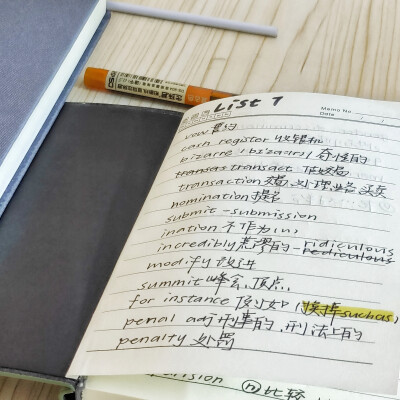 List 1
Memo No.
Date
vow 誓约
cash register 收银机
bizarre (bizazar) 奇怪的
transers transact 做交易
transaction 交易,处理业务 买卖
nomination 提名
submit - submission
ination 不作为(n)
incredibly 荒谬的 - ridiculous
rediculous
modify 改进
summit 峰会,顶点
for instance 例如 (换掉 such as)
penal adj 刑事的,刑法上的
penalty 处罚
(n) 比较